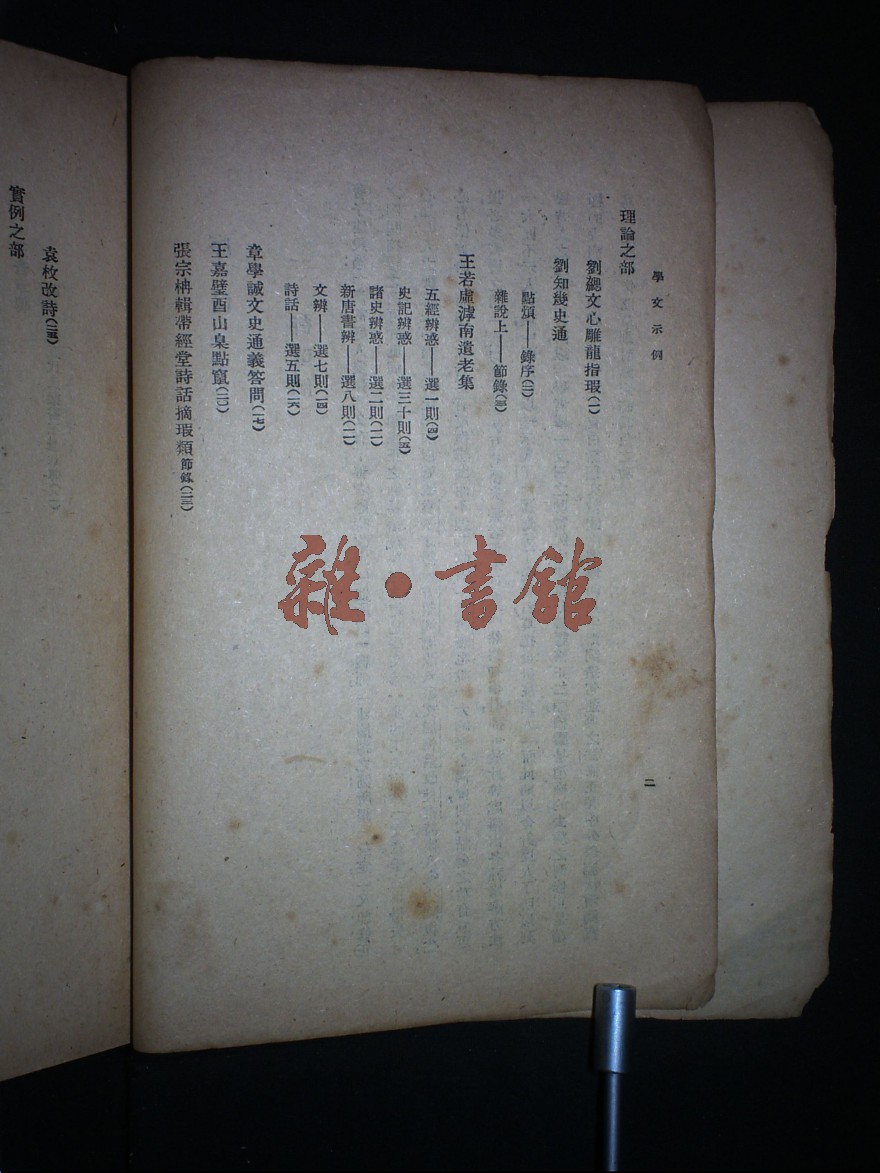 學文示例
二
理論之部
劉勰文心雕龍指瑕(一)
劉知幾史通
點煩——錄序(三)
雜說上——節錄(三)
王若虛滹南遺老集
五經辨惑——選一則(四)
史記辨惑——選三十則(五)
諸史辨惑——選二則(一一)
新唐書辨——選八則(一二)
文辨——選七則(一四)
詩話——選五則(一六)
章學誠文史通義答問(一七)
王嘉璧酉山臬點竄(二〇)
張宗柟輯帶經堂詩話摘瑕類節錄(二三)
實例之部
袁枚改詩(二六)
雜•書館